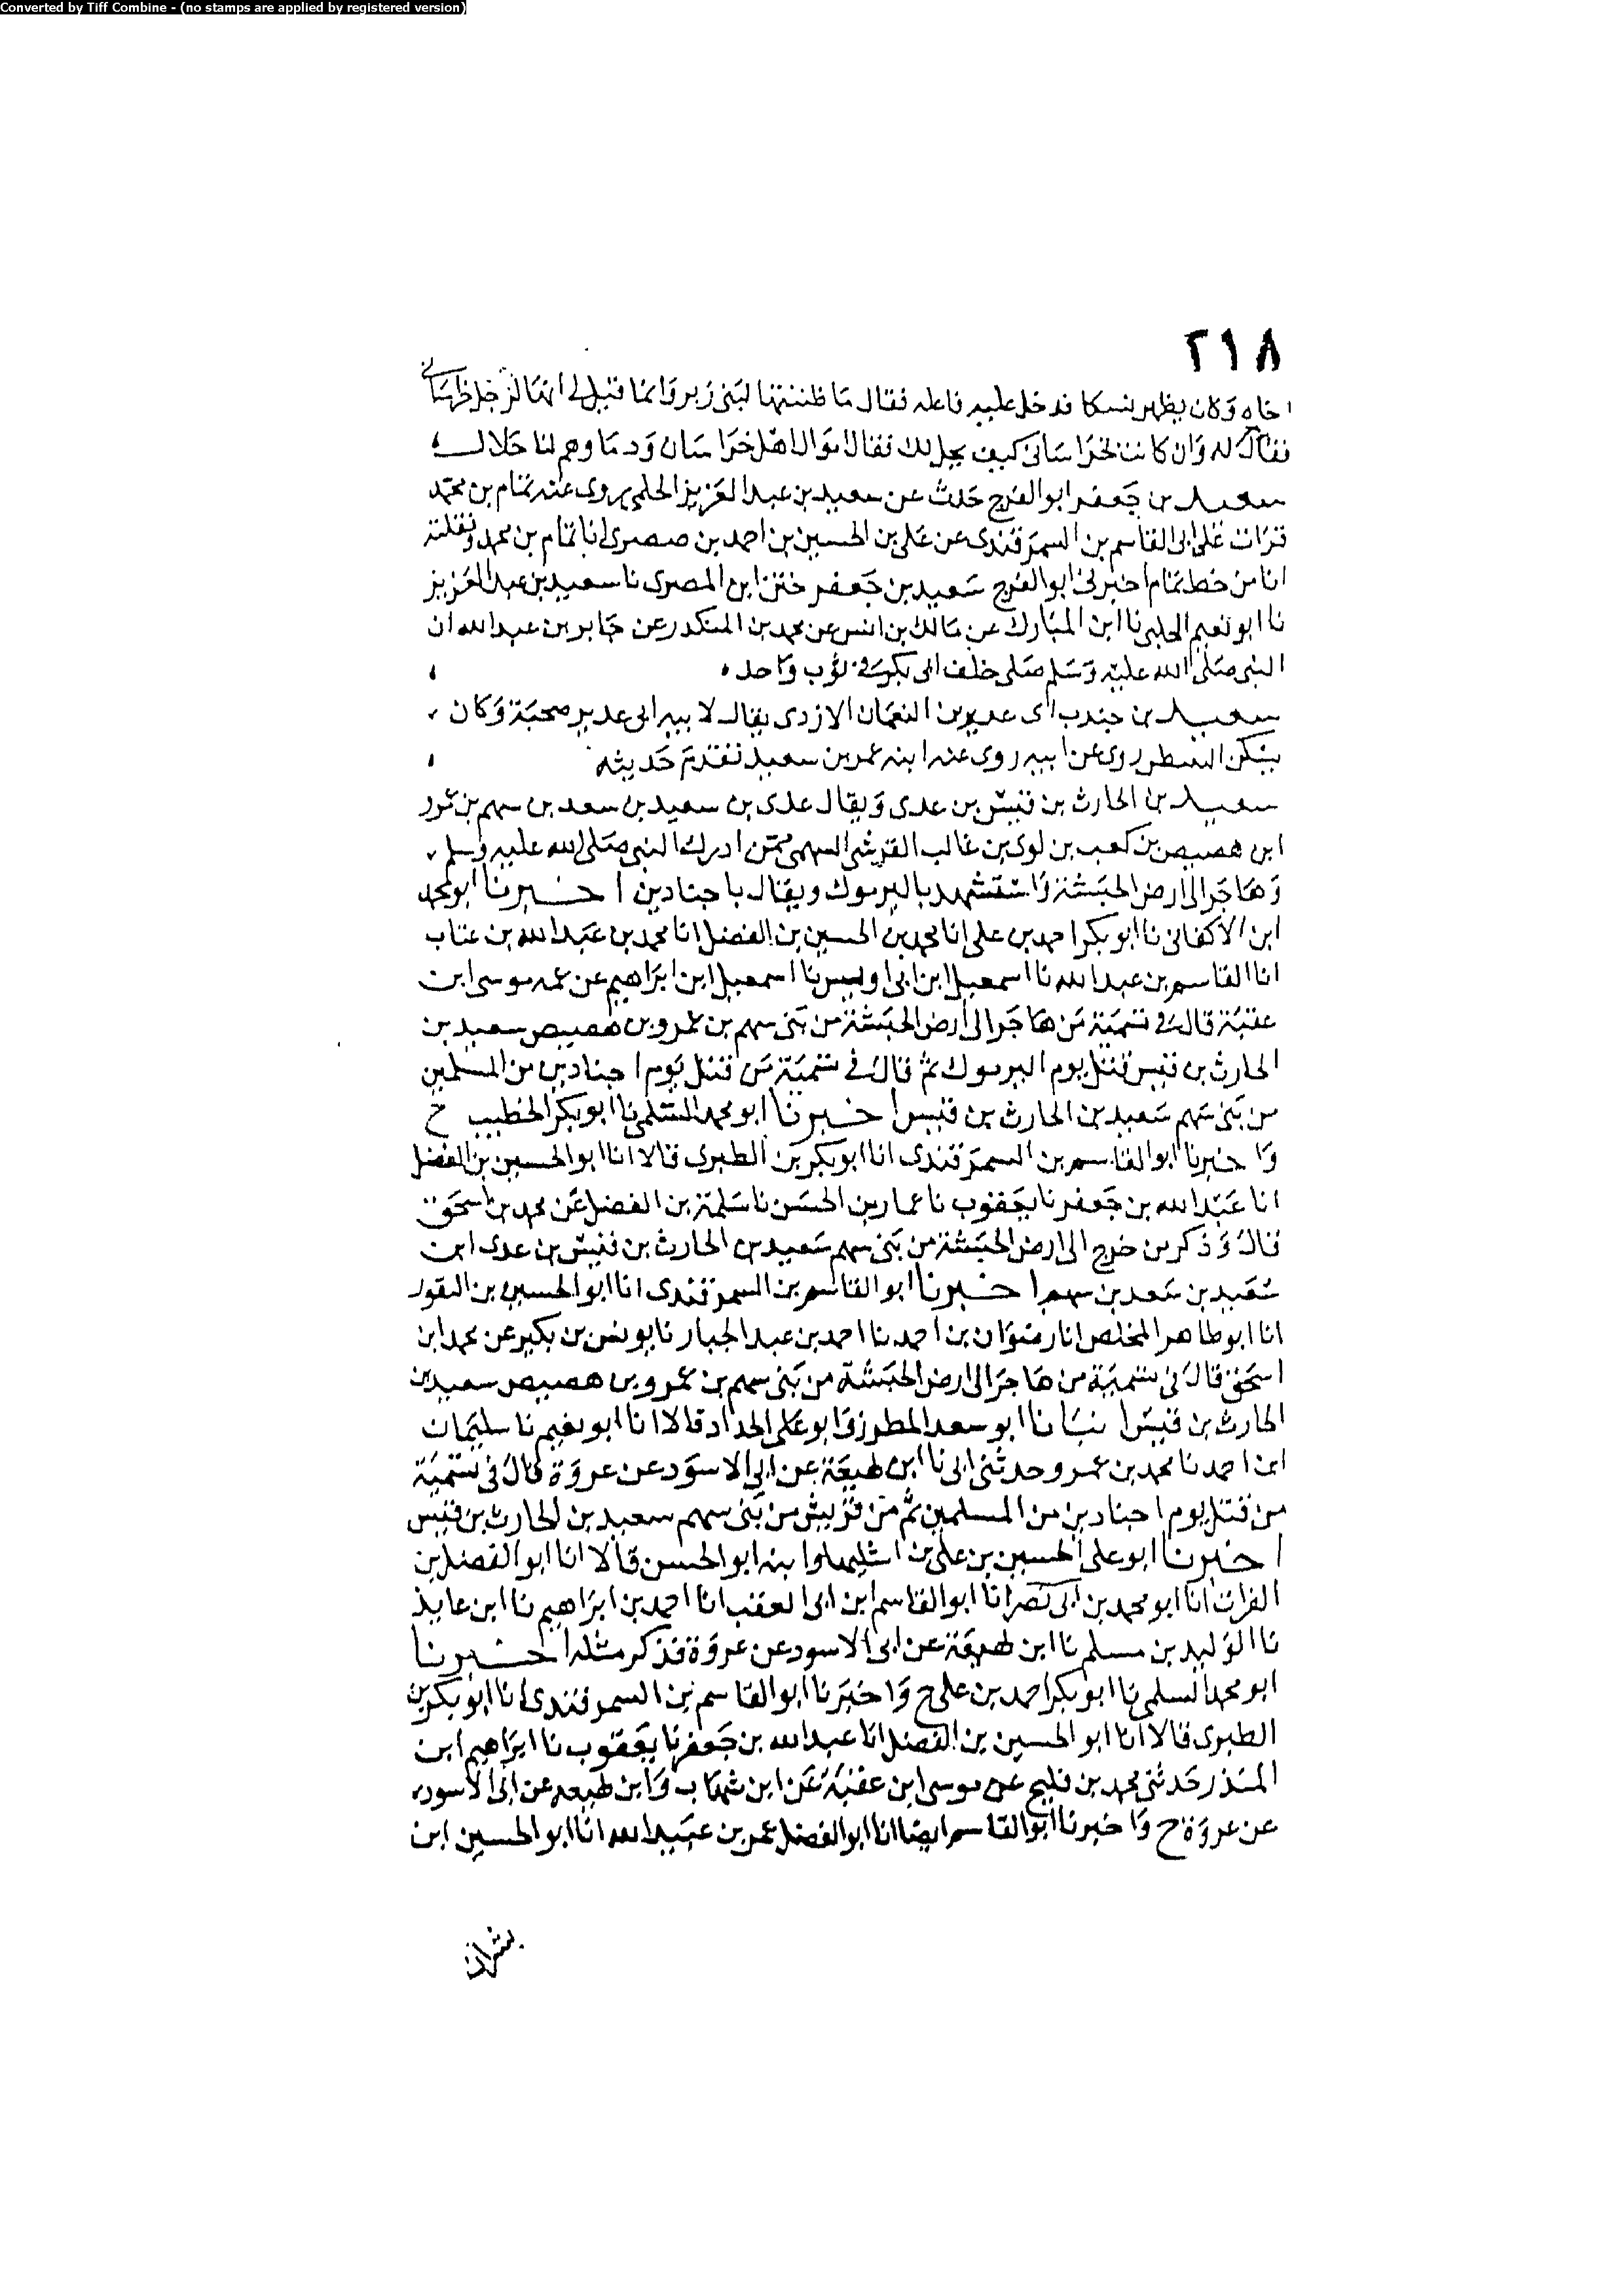 Converted by Tiff Combine - (no stamps are applied by registered version)
٢١٨
اخاه وكان يظهر نسكا فدخل عليه فاعله فقال ما ظننتها لبني زبر وانما قيل لي انها لرجل خراساني
فقال له وان كانت لخراساني كيف يحل لك فقال اموال اهل خراسان ودماوهم لنا حلال
سعيد بن جعفر ابو الفرج حدث عن سعيد بن عبد العزيز الحلبي يروى عنه تمام بن محمد
قرات على ابي القاسم بن السمرقندى عن على بن الحسين بن احمد بن صصرى انا تمام بن محمد ونقلته
انا من خط تمام اخبرني ابو الفرج سعيد بن جعفر ختن ابن المصرى نا سعيد بن عبد العزيز
نا ابو نعيم الحلبي نا ابن المبارك عن مالك بن انس عن محمد بن المنكدر عن جابر بن عبد الله ان
النبي صلى الله عليه وسلم صلى خلف ابي بكر في ثوب واحد
سعيد بن جندب ابى عدير بن النعمان الازدى يقال لابيه ابى عدير صحبة وكان
يسكن روى عن ابيه روى عنه ابنه عمر بن سعيد تقدم حديثه
سعيد بن الحارث بن قيس بن عدى ويقال عدى بن سعيد بن سعد بن سهم بن عمرو
ابن هصيص بن كعب بن لوى بن غالب القرشى السهمى ممن ادرك النبى صلى الله عليه وسلم
وهاجر الى ارض الحبشة واستشهد باليرموك ويقال باجنادين اخبرنا ابو محمد
ابن الاكفانى نا ابو بكر احمد بن على انا محمد بن الحسين بن الفضل انا محمد بن عبد الله بن عتاب
انا القاسم بن عبد الله نا اسمعيل ابن ابى اويس نا اسمعيل ابن ابراهيم عن عمه موسى ابن
عقبة قال فى تسمية من هاجر الى ارض الحبشة من بنى سهم بن عمرو بن هصيص سعيد بن
الحارث بن قيس قتل يوم اليرموك ثم قال فى تسمية من قتل يوم اجنادين من المسلمين
من بنى سهم سعيد بن الحارث بن قيس اخبرنا ابو محمد السلمى نا ابو بكر الخطيب ح
واخبرنا ابو القاسم بن السمرقندى انا ابو بكر بن الطبرى قالا انا ابو الحسين بن الفضل
انا عبد الله بن جعفر نا يعقوب نا عمار بن الحسن نا سلمة بن الفضل عن محمد بن اسحق
قال وذكر من خرج الى ارض الحبشة من بنى سهم سعيد بن الحارث بن قيس بن عدى ابن
سعيد بن سعد بن سهم اخبرنا ابو القاسم بن السمرقندى انا ابو الحسين بن النقور
انا ابو طاهر المخلص انا رضوان بن احمد نا احمد بن عبد الجبار نا يونس بن بكير عن محمد ابن
اسحق قال فى تسمية من هاجر الى ارض الحبشة من بنى سهم بن عمرو بن هصيص سعيد بن
الحارث بن قيس انبانا ابو سعد المطرز وابو على الحداد قالا انا ابو نعيم نا سليمان
ابن احمد نا محمد بن عمرو حدثنى ابى نا ابن لهيعة عن ابى الاسود عن عروة قال فى تسمية
من قتل يوم اجنادين من المسلمين ثم من قريش من بنى سهم سعيد بن الحارث بن قيس
اخبرنا ابو على الحسين بن على بن اشليها وابنه ابو الحسن قالا انا ابو الفضل بن
الفرات انا ابو محمد بن ابى نصر انا ابو القاسم ابن ابى العقب انا احمد بن ابراهيم نا ابن عايذ
نا الوليد بن مسلم نا ابن لهيعة عن ابى الاسود عن عروة فذكر مثله اخبرنا
ابو محمد السلمى نا ابو بكر احمد بن على ح واخبرنا ابو القاسم بن السمرقندى انا ابو بكر بن
الطبرى قالا انا ابو الحسين بن الفضل انا عبد الله بن جعفر نا يعقوب نا ابراهيم ابن
المنذر حدثنى محمد بن فليح عن موسى ابن عقبة عن ابن شهاب وابن لهيعه عن ابى الاسود
عن عروة ح واخبرنا ابو القاسم ايضا انا ابو الفضل عمر بن عبيد الله انا ابو الحسين ابن
بشران